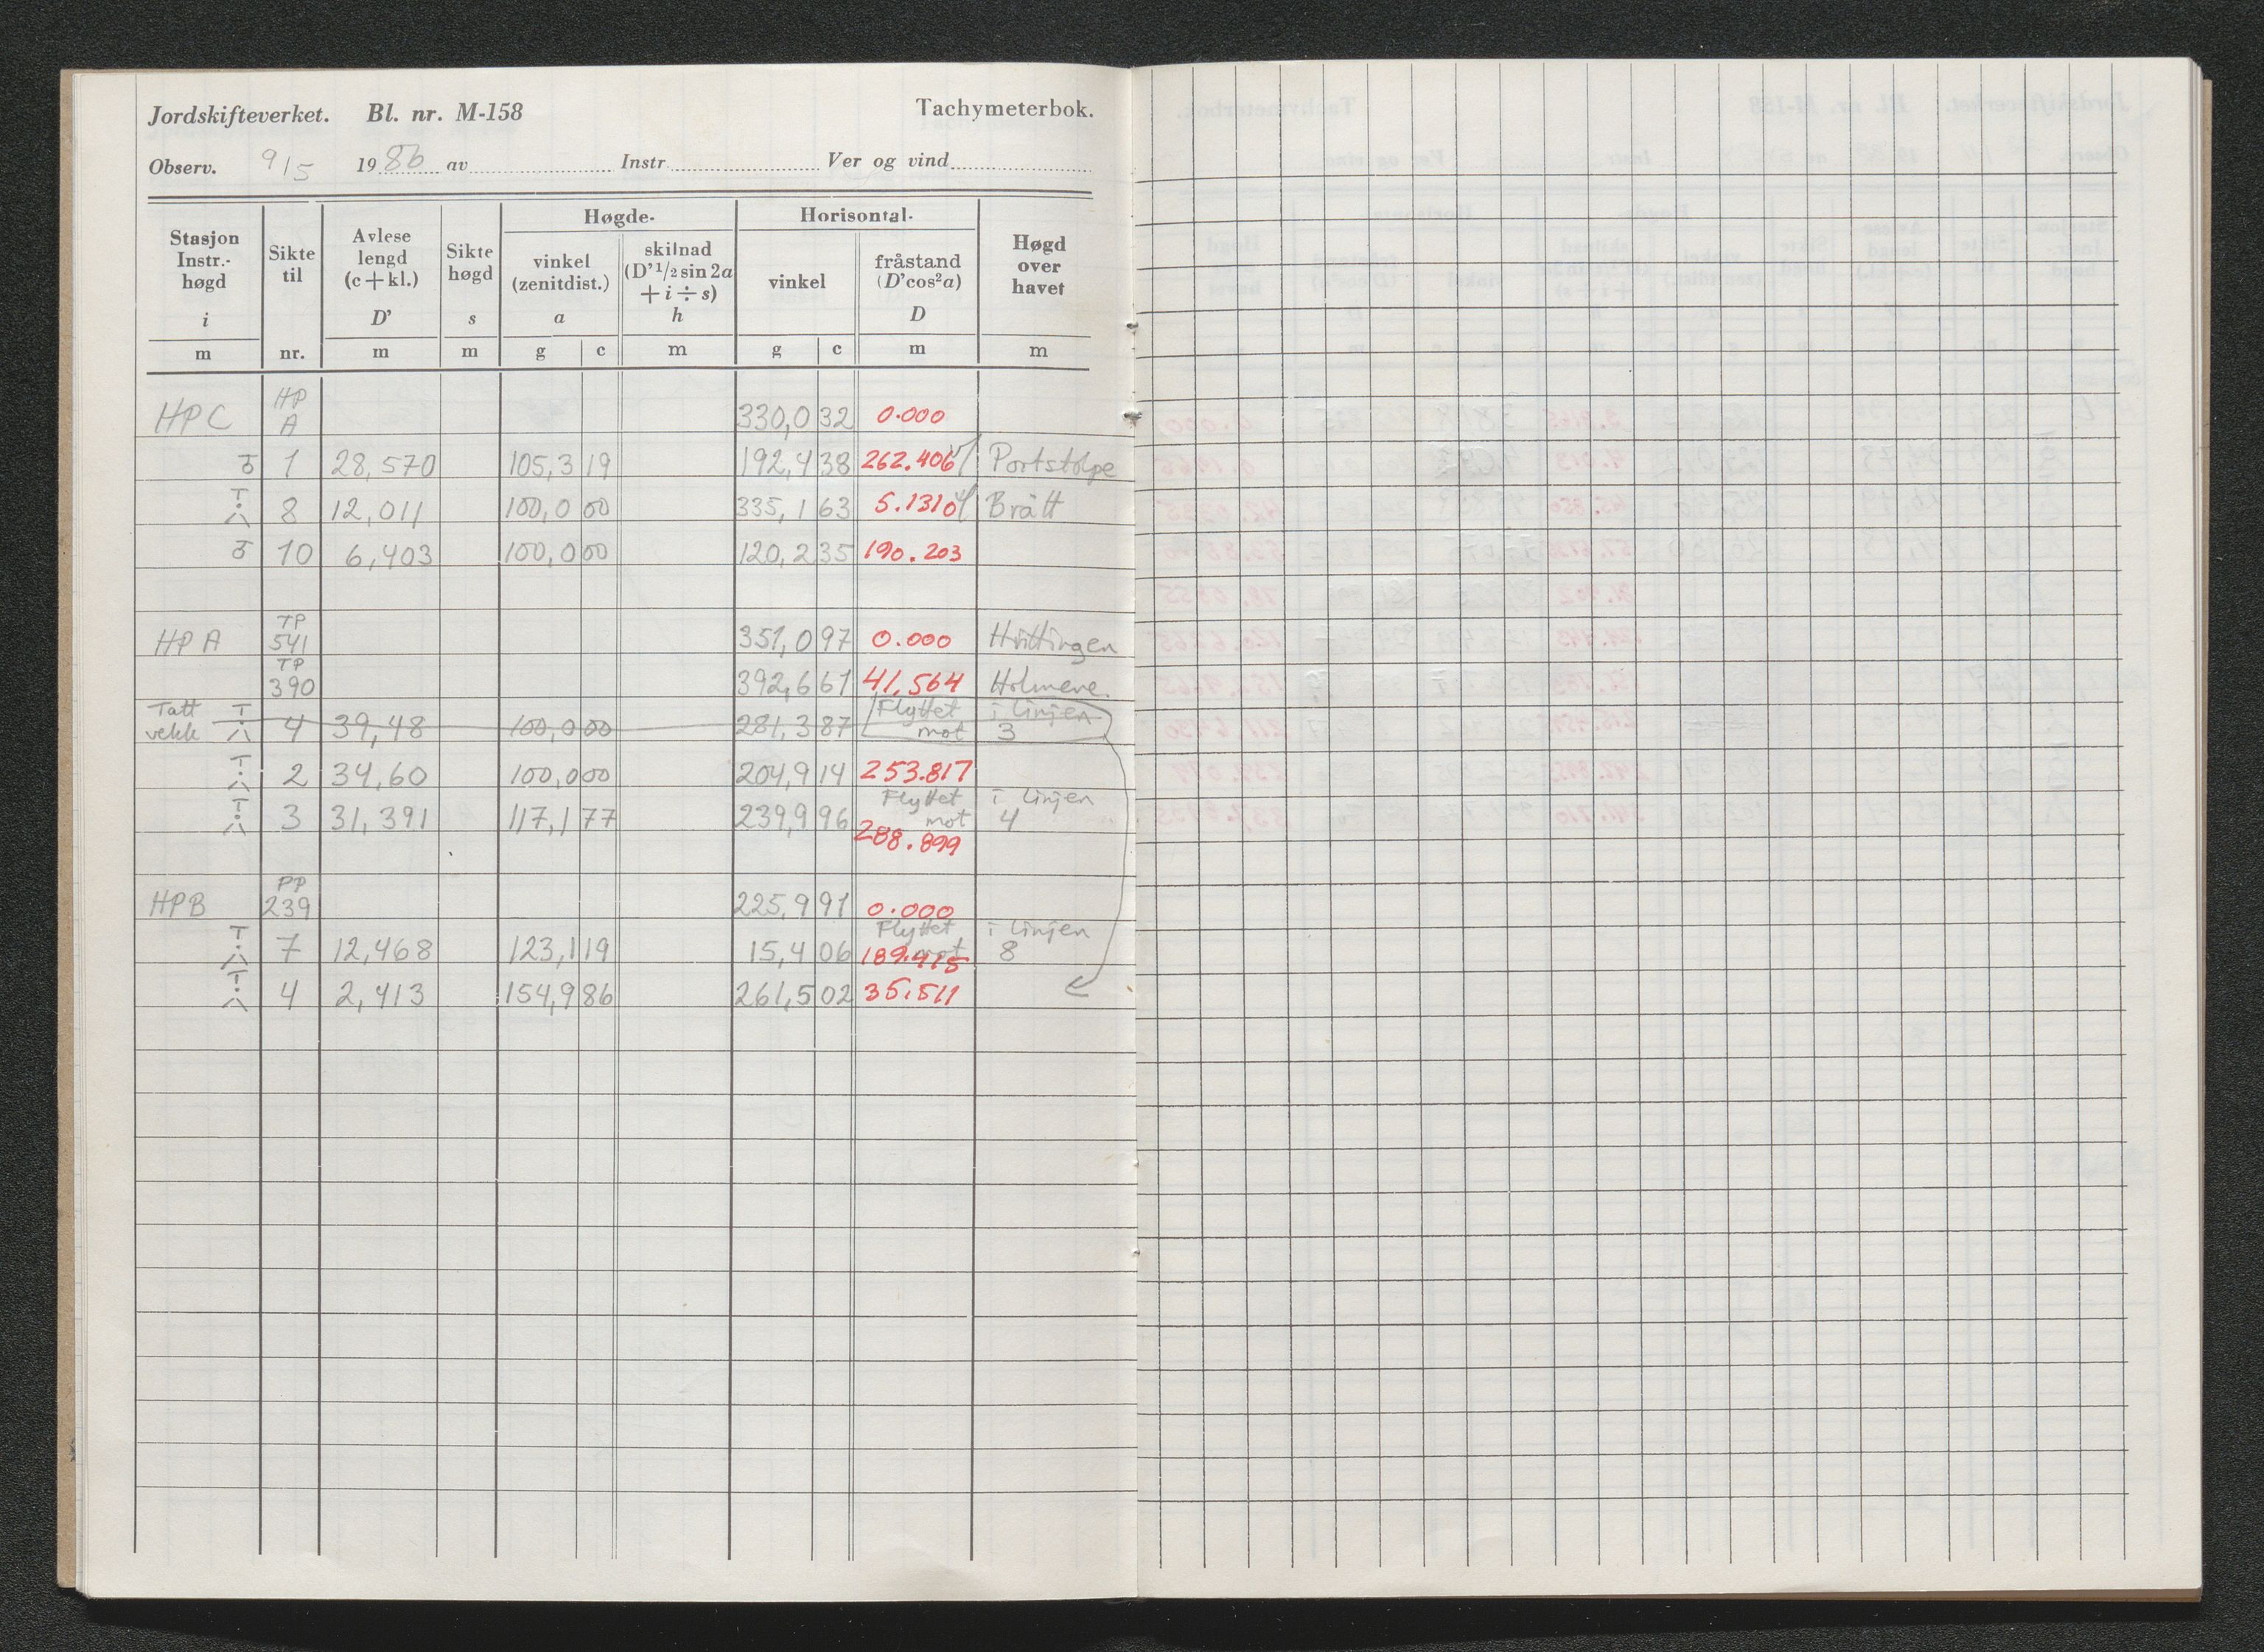 Jordskifteverket. Bl. nr. M-158 Tachymeterbok.
Observ. 9/5 1986 av Instr. Ver og vind
Stasjon Instr.- høgd i m
Sikte til nr.
Avlese lengd (c+kl.) D' m
Sikte høgd s m
Høgde-
vinkel (zenitdist.) a g c
skilnad (D'1/2 sin 2a + i ÷ s) h m
Horisontal-
vinkel g c
fråstand (D'cos²a) D m
Høgd over havet m
HP C HP A 330,032 0.000
1 28,570 105,319 192,438 262.406 Portstolpe
8 12,011 100,000 335,163 5.131 Brått
10 6,403 100,000 120,235 190.203
HP A TP 541 351,097 0.000 Hvittingen
TP 390 392,661 41.564 Holmene.
Tatt vekk 4 39,48 100,000 281,387 Flyttet mot i linjen 3
2 34,60 100,000 204,914 253.817
3 31,391 117,177 239,996 Flyttet mot i linjen 4
288.899
HPB PP 239 225,991 0.000
7 12,468 123,119 15,406 Flyttet mot i linjen 8
189.415
4 2,413 154,986 261,502 35.511